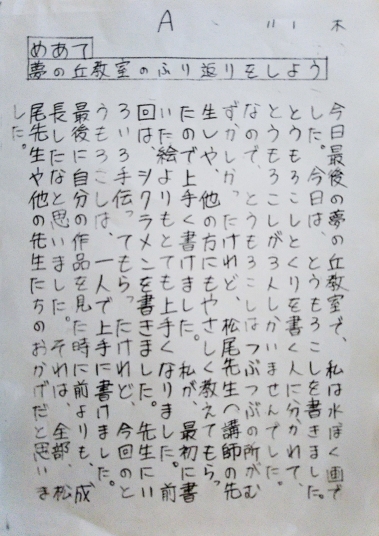 A
11 1 木
めあて
夢の丘教室のふり返りをしよう
今日最後の夢の丘教室で、私は水ぼく画で
した。今日は、とうもろこしを書きました。
とうもろこしとくりを書く人に分かれて、
とうもろこしが3人しかいませんでした。
なので、とうもろこしはつぶつぶの所がむ
ずかしかったけれど、松尾先生へ講師の先
生しや、他の方にもやさしく教えてもらっ
たので上手く書けました。私が、最初に書
いた絵よりもとても上手くなりました。前
回は、シクラメンを書きました。先生にい
ろいろ手伝ってもらったけれど、今回のと
うもろこしは、一人で上手に書けました。
最後に自分の作品を見た時に前よりも、成
長したなと思いました。それは、全部、松
尾先生や他の先生たちのおかげだと思いま
した。